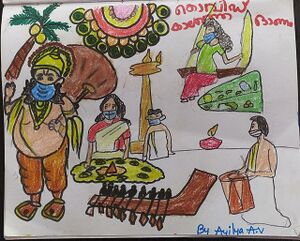 കൊവിഡ്
കാലത്തെ ഓണം
By Ayilya A.V